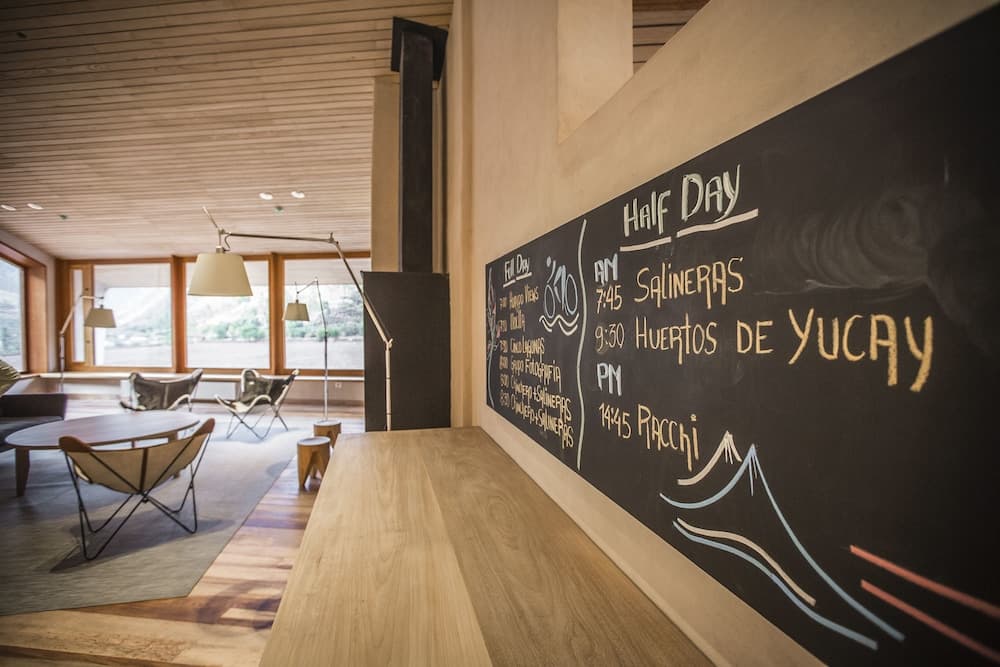 Full Day
Views
Cinco Lagunas
Grupo Fotografia
8:30 Chinchero + Salineras
8:30 Chinchero + Salineras
Half Day
AM
7:45 Salineras
9:30 Huertos de Yucay
PM
14:45 Racchi